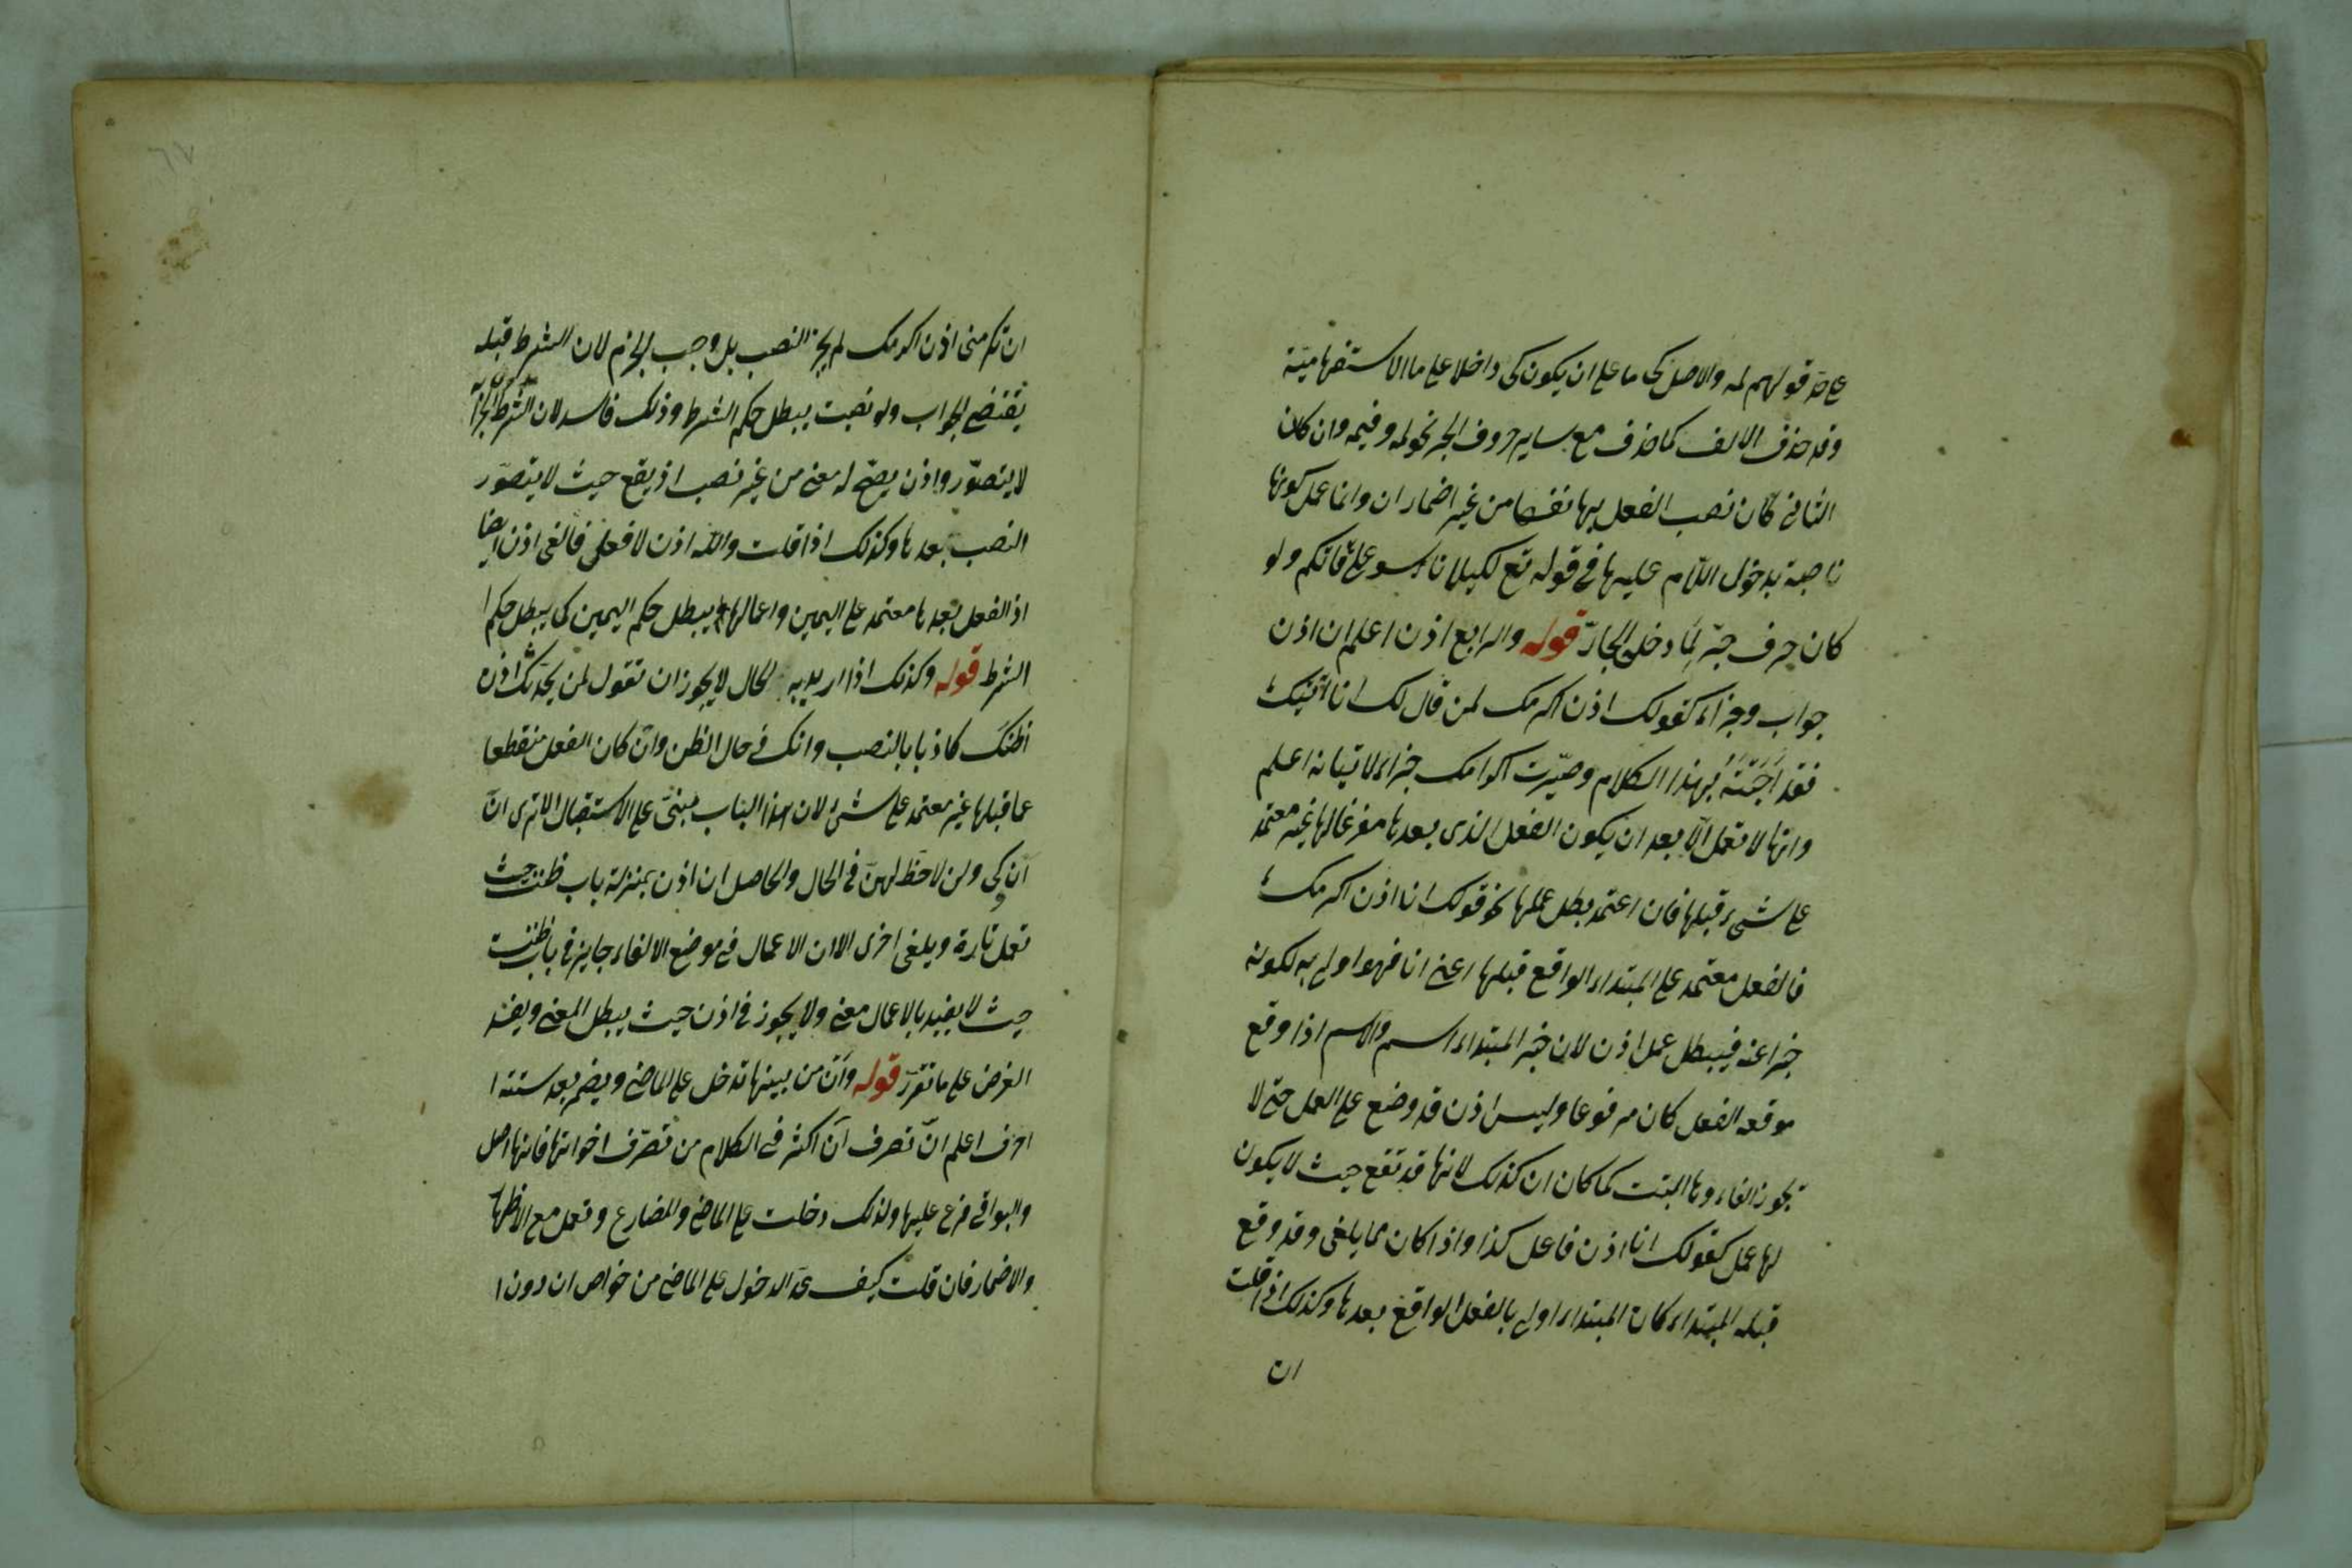 على حدّ قولهم لمه والاصل كى ما على ان يكون كى داخلا على ما الاستفهاميّة
وقد حذف الالف كما حذف مع ساير حروف الجر نحو لمه وفيمه وان كان
الثانى كان نصب الفعل بها نفسها من غير اضمار ان وانما عمل كونها
ناصبة بدخول اللّام عليها فى قوله تع لكيلا تاسوا على ما فاتكم ولو
كان حرف جرّ لمّا دخل الجارّ قوله والرابع اذن اعلم ان اذن
جواب وجزاء كقولك اذن اكرمك لمن قال لك انا اتيك
فقد اجبته بهذا الكلام وصيّرت اكرامك جزاء لاتيانه اعلم
وانها لا تعمل الّا بعد ان يكون الفعل الذى بعدها مفرغا لها غير معتمد
على شىء قبلها فان اعتمد بطل عملها نحو قولك انا اذن اكرمك
فالفعل معتمد على المبتداء الواقع قبلها اعنى انا فهو اولى به لكونه
خبرا عنه فيبطل عمل اذن لان خبر المبتداء اسم والاسم اذا وقع
موقعه الفعل كان مرفوعا وليس اذن قد وضع على العمل حتى لا
يجوز الغاءوها البتت كما كان ان كذلك لانها قد تقع حيث لا يكون
لها عمل كقولك انا اذن فاعل كذا واذا كان مما يلغى وقد وقع
قبله المبتداء كان المبتداء اولى بالفعل الواقع بعدها وكذلك اذا قلت
ان
ان تكرمنى اذن اكرمك لم يجز النصب بل وجب الجزم لان الشرط قبله
يقتضى الجواب ولو نصبت يبطل حكم الشرط وذلك فاسد لان الشرط بلا جزاء
لا يتصوّر واذن يصحّ له معنى من غير نصب اذ يقع حيث لا يتصوّر
النصب بعدها وكذلك اذا قلت والله اذن لا فعلى فالغى اذن ايضا
اذ الفعل بعدها معتمد على اليمين واعمالها يبطل حكم اليمين كى يبطل حكم
الشرط قوله وكذلك اذا اريد به الحال لا يجوز ان تقول لمن يحدّثك اذن
اظنّك كاذبا بالنصب وانك فى حال الظن وان كان الفعل منقطعا
عما قبلها غير معتمد على شئ لان هذا الباب مبنىّ على الاستقبال الا ترى انّ
ان وكى ولن لا حظّ لهنّ فى الحال والحاصل ان اذن بمنزلة باب ظننت حيث
تعمل تارة ويلغى اخرى الا ان الاعمال فى موضع الالغاء جايز فى باب ظننت
حيث لا يفيد بالاعمال معنى ولا يجوز فى اذن حيث يبطل المعنى ويفسد
الغرض على ما تقرّر قوله وانّ من بينها تدخل على الماضى ويضمر بعد ستة
احرف اعلم انّ تصرف ان اكثر فى الكلام من تصرّف اخواتها فانها اصل
والبواقى فرع عليها ولذلك دخلت على الماضى والمضارع وتعمل مع الاظهار
والاضمار فان قلت كيف عدّ الدخول على الماضى من خواص ان دون